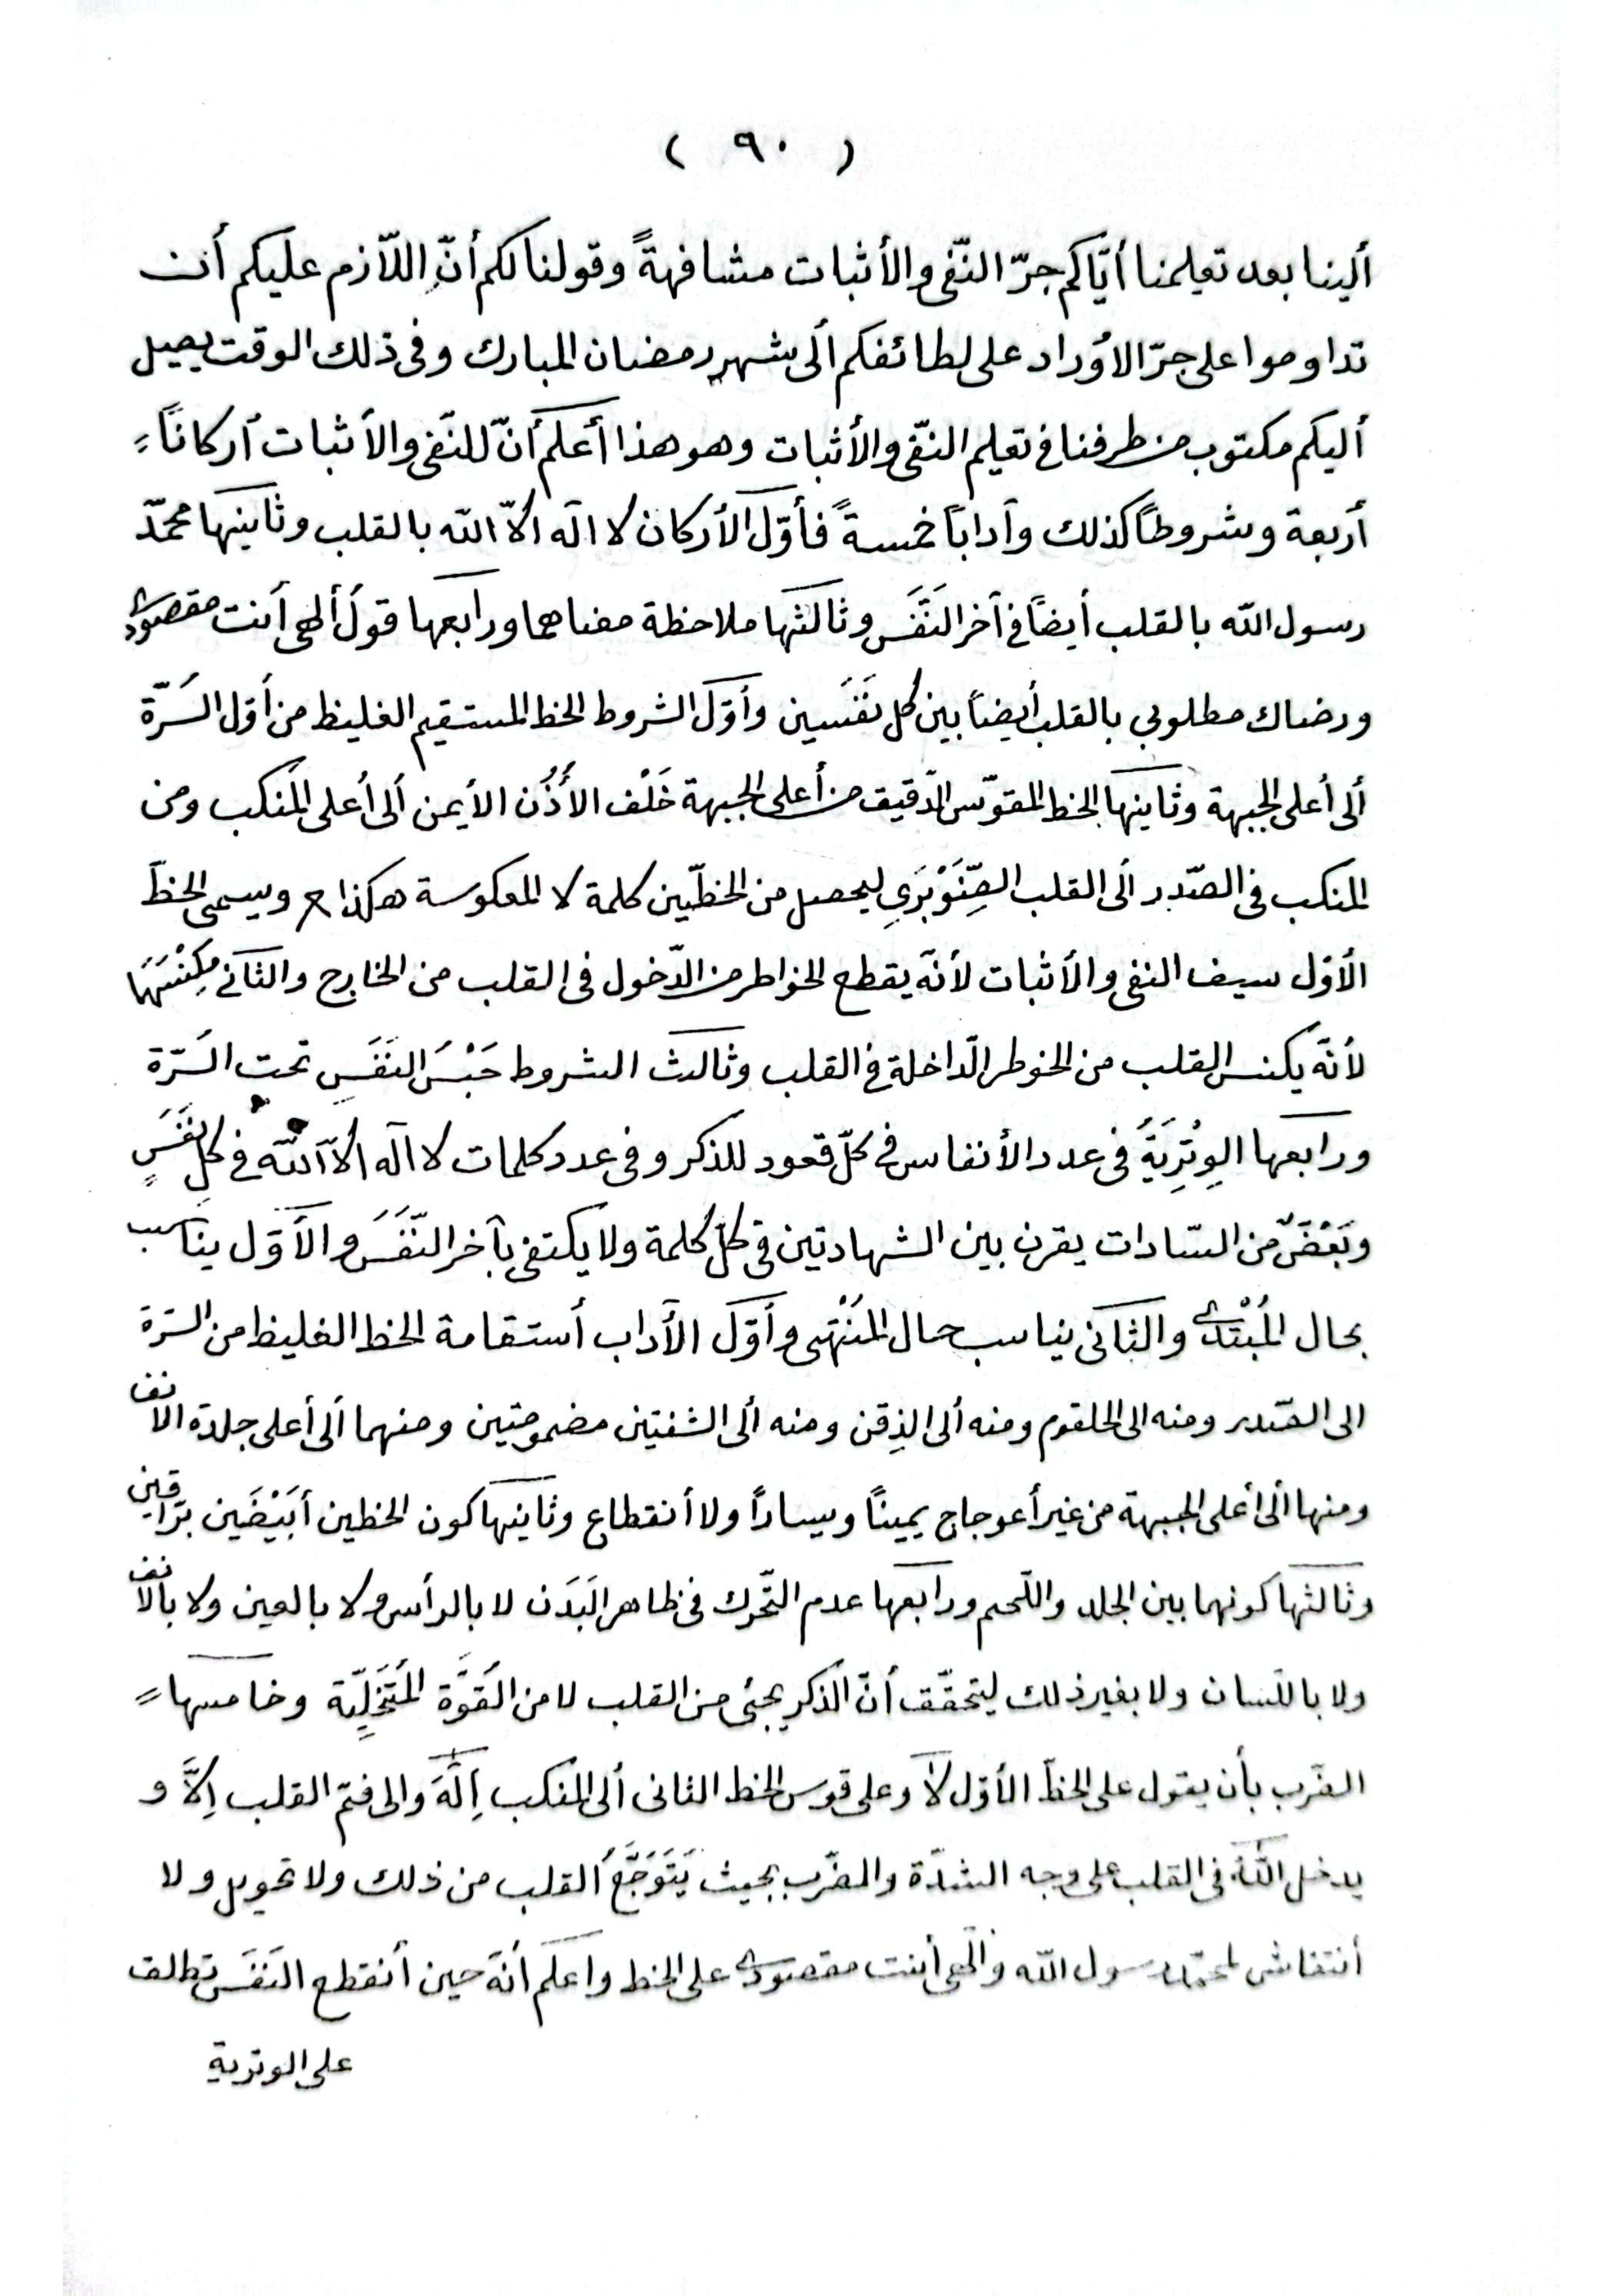 ( ٩٠ )
ألينا بعد تعليمنا أيّاكم جرّ النّفى والأثبات مشافهةً وقولنا لكم أنّ اللّازم عليكم أن
تداوموا على جرّ الاوراد على لطائفكم ألى شهر رمضان المبارك وفى ذلك الوقت يصل
أليكم مكتوب من طرفنا فى تعليم النّفى والأثبات وهو هذا أعلم أنّ للنّفى والأثبات أركاناً
أربعة وشروطاً كذلك وآداباً خمسةً فأوّل الأركان لا اله الّا الله بالقلب وثانيها محمّد
رسول الله بالقلب أيضاً فى آخر النَفَس وثالثها ملاحظة معناهما ورابعها قول ألهى أنت مقصودى
ورضاك مطلوبي بالقلب أيضاً بين كل نَفَسَين وأوّل الشروط الخط المستقيم الغليظ من أول السّرّة
ألى أعلى الجبهة وثانيها الخط المقوّس الدّقيق من أعلى الجبهة خَلْف الأُذُن الأيمن ألى أعلى المنكب ومن
المنكب فى الصّدر الى القلب الصِّنَوْبَرَيِ ليحصل من الخطّين كلمة لا المعكوسة هكذا ويسمى الخطّ
الأوّل سيف النفى والأثبات لأنّه يقطع الخواطر من الدّخول فى القلب من الخارج والثانى مِكْنَسَتَها
لأنّه يكنس القلب من الخوطر الدّاخلة فى القلب وثالث الشروط حَبْسُ النَفَسِ تحت السّرّة
ورابعها الوِتْرِيَّةُ فى عدد الأنفاس فى كلّ قعود للذكر وفى عدد كلمات لا اله الّا اللّه فى كل نَفَسٍ
وبَعْضٌ من السّادات يقرن بين الشهادتين فى كلّ كلمة ولا يكتفى بآخر النَّفَسَ والأوّل يناسب
بحال المُبْتَدى والثانى يناسب حال المُنْتَهى وأوّل الآداب أستقامة الخط الغليظ من السّرّة
الى الصّدر ومنه الى الحلقوم ومنه ألى الذِقن ومنه ألى الشفتين مضمومتين ومنهما ألى أعلى جلدة الانف
ومنها ألى أعلى الجبهة من غير أعوجاج يميناً ويساراً ولا أنقطاع وثانيها كون الخطين أبَيْضَين برّاقين
وثالثها كونهما بين الجلد واللّحم ورابعها عدم التّحرّك فى ظاهر البَدَن لا بالرأس ولا بالعين ولا بالانف
ولا باللّسان ولا بغير ذلك ليتحقّق أنّ الذّكر يجئ من القلب لا من القُوَّة المُتَخَيِّلة وخامسها
الضّرب بأن يقول على الخطّ الأوّل لا وعلى قوس الخط الثانى ألى المنكب إلهَ والى فمّ القلب إلاَّ و
يدخل اللّهُ فى القلب على وجه الشدّة والضّرب بحيث يَتَوَجَّعُ القلب من ذلك ولا تحويل ولا
أنتقاش لمحمّد رسول الله وألهى أنت مقصودى على الخط واعلم أنّه حين أنقطع النَفَس تطلق
على الوترية